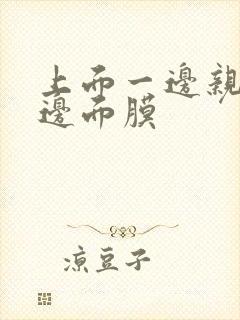 上而一邊親
邊而膜
涼豆子